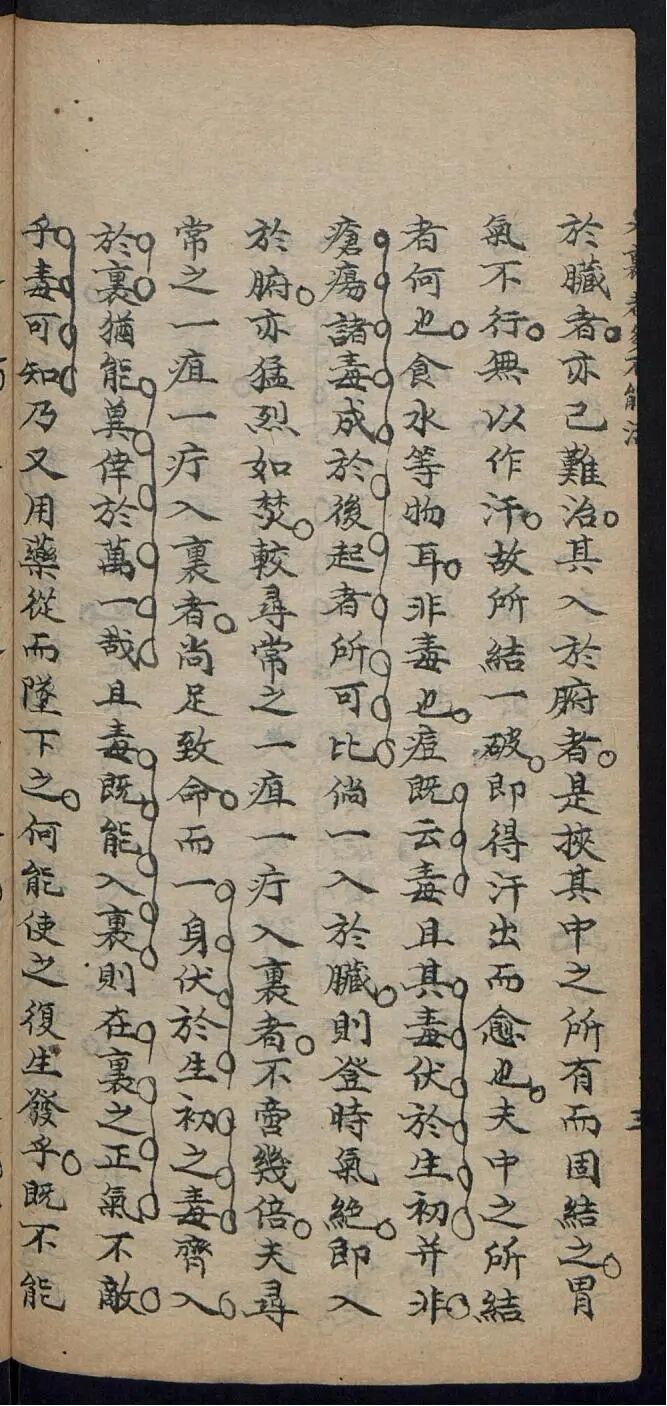 於臟者亦已難治其入於腑者是挾其中之所有而固結之胃
氣不行無以作汗故所結一破即得汗出而愈也夫中之所結
者何也食水等物耳非毒也痘既云毒且其毒伏於生初并非
瘡瘍諸毒成於後起者所可比倘一入於臟則登時氣絶即入
於腑亦猛烈如焚較尋常之一疽一疔入裏者不啻幾倍夫尋
常之一疽一疔入裏者尚足致命而一身伏於生初之毒齊入
於裏猶能兾倖於萬一哉且毒既能入裏則在裏之正氣不敵
乎毒可知乃又用藥從而墜下之何能使之復生發乎既不能